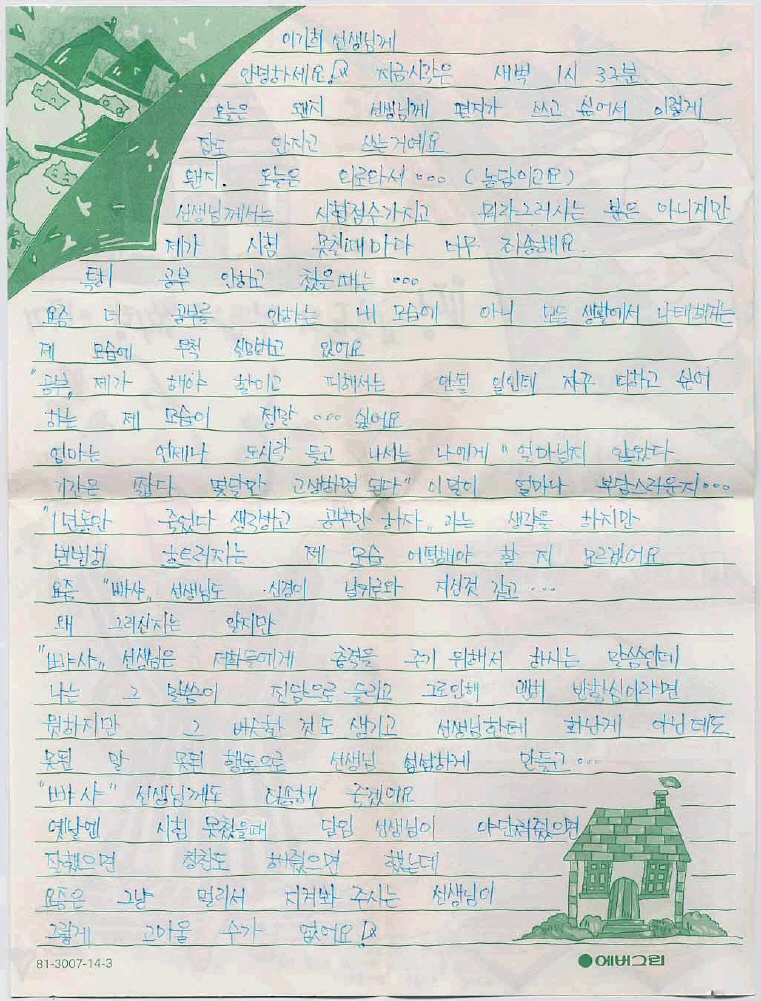 이기희 선생님께
안녕하세요! 지금시각은 새벽 1시 32분.
오늘은 왠지 선생님께 편지가 쓰고 싶어서 이렇게
잠도 안자고 쓰는거예요
왠지. 오늘은 외로와서 ooo (농담이고요)
선생님께서는 시험점수가지고 뭐라그러시는 분은 아니지만
제가 시험 못칠때마다 너무 죄송해요.
특히 공부 안하고 쳤을때는 ooo
요즘 더 공부를 안하는 내 모습에 아니 모든 생활에서 나태해지는
제 모습에 무척 실망하고 있어요
"공부" 제가 해야 할일이고 피해서는 안될 일인데 자꾸 피하고 싶어
하는 제 모습이 정말 ooo 싫어요
엄마는 언제나 도시락 들고 나서는 나에게 "얼마남지 않았다
기간은 짧다 몇달만 고생하면 된다" 이 말이 얼마나 부담스러운지ooo
"1년동안 죽었다 생각하고 공부만 하자" 라는 생각을 하지만
번번히 흐트러지는 제 모습 어떡해야 할 지 모르겠어요
요즘 "빠샤" 선생님도 신경이 날카로와 지신것 같고 ...
왜 그러신지는 알지만
"빠샤" 선생님은 저희들에게 충격을 주기 위해서 하시는 말씀인데
나는 그 말씀이 진담으로 들리고 그로인해 괜히 반항심이라면
뭣하지만 그 비슷한 것도 생기고 선생님한테 화난게 아닌데도
못된 말 못된 행동으로 선생님 섭섭하게 만들고 ...
"빠샤" 선생님께도 죄송해 죽겠어요
옛날엔 시험 못쳤을때 담임 선생님이 야단쳐줬으면
잘했으면 칭찬도 해줬으면 했는데
요즘은 그냥 멀리서 지켜봐 주시는 선생님이
그렇게 고마울 수가 없어요!
81-3007-14-3
●에버그린